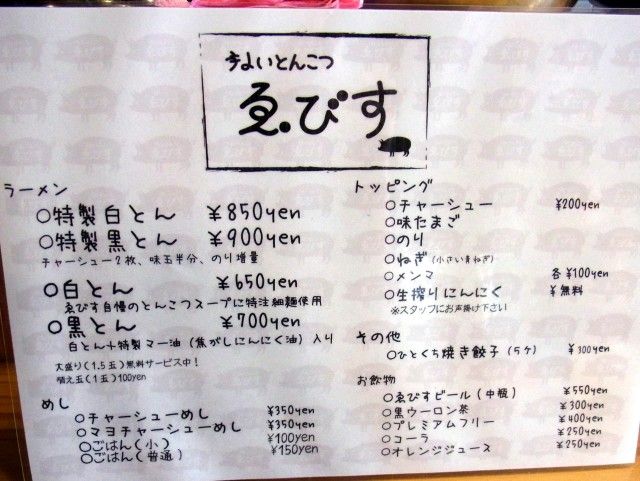 今よいとんこつ
ゑびす
ラーメン
○特製白とん ¥850yen
○特製黒とん ¥900yen
チャーシュー2枚、味玉半分、のり増量
○白とん ¥650yen
ゑびす自慢のとんこつスープに特注細麺使用
○黒とん ¥700yen
白とん+特製マー油(焦がしにんにく油)入り
大盛り(1.5玉)無料サービス中!
替え玉(1玉)100yen
めし
○チャーシューめし ¥350yen
○マヨチャーシューめし ¥350yen
○ごはん(小) ¥100yen
○ごはん(普通) ¥150yen
トッピング
○チャーシュー ¥200yen
○味たまご
○のり
○ねぎ(小さい青ねぎ)
○メンマ 各¥100yen
○生搾りにんにく ¥無料
※スタッフにお声掛け下さい
その他
○ひとくち焼き餃子(5ケ) ¥300yen
お飲物
○ゑびすビール(中瓶) ¥550yen
○黒ウーロン茶 ¥300yen
○プレミアムフリー ¥400yen
○コーラ ¥250yen
○オレンジジュース ¥250yen